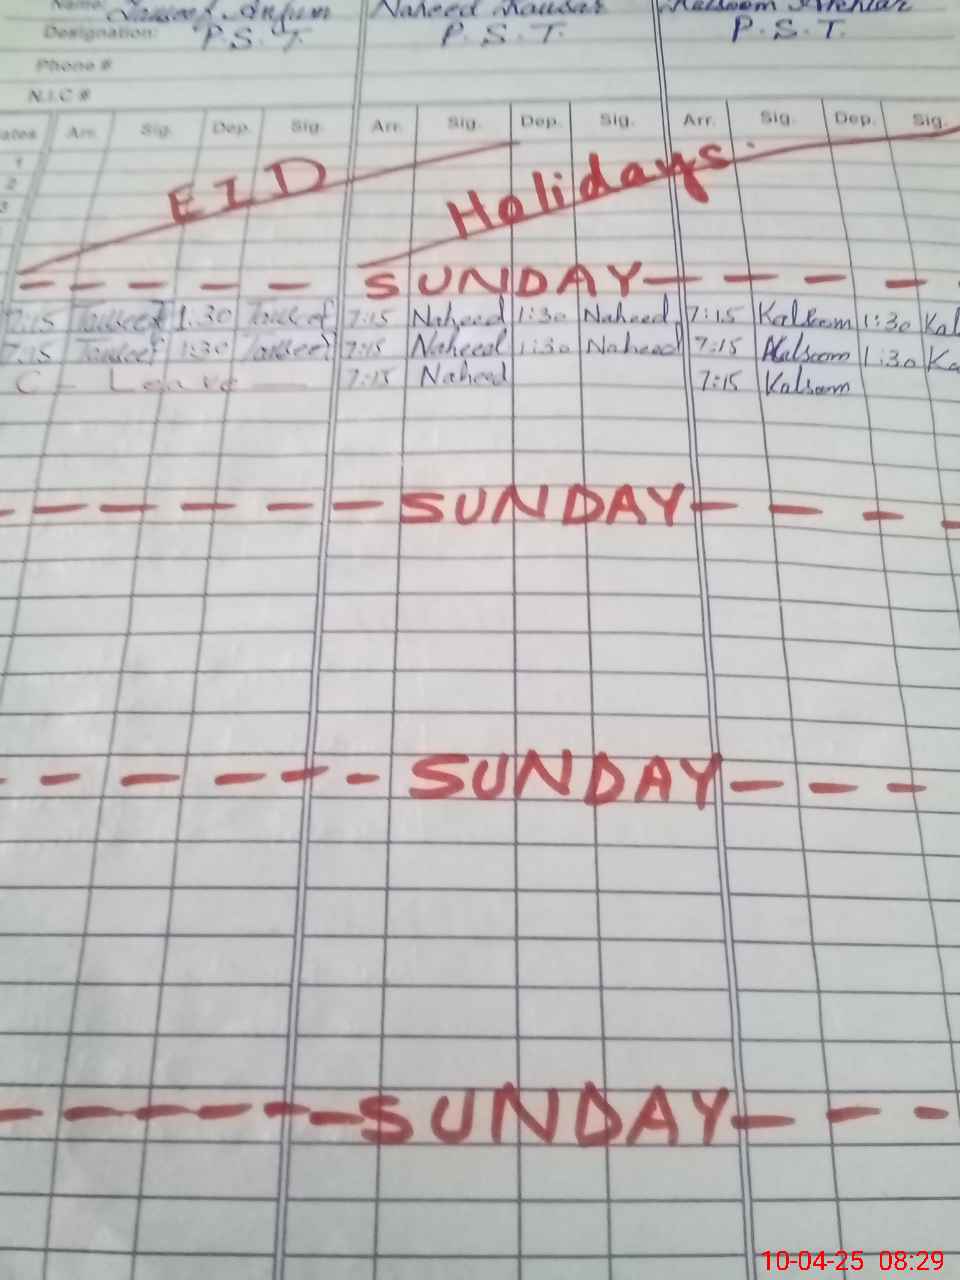 Name: Touseef Anjum Naheed Kausar Kalsoom Akhtar
Designation: P.S.T. P.S.T. P.S.T.
Phone #
N.I.C #
ates Arr. Sig. Dep. Sig. Arr. Sig. Dep. Sig. Arr. Sig. Dep. Sig.
1
2
3
EID Holidays.
SUNDAY
7:15 Touseef 1:30 Touseef 7:15 Naheed 1:30 Naheed 7:15 Kalsoom 1:30 Kal
7:15 Touseef 1:30 Touseef 7:15 Naheed 1:30 Naheed 7:15 Kalsoom 1:30 Ka
C - Leave 7:15 Naheed 7:15 Kalsoom
SUNDAY
SUNDAY
SUNDAY
10-04-25 08:29